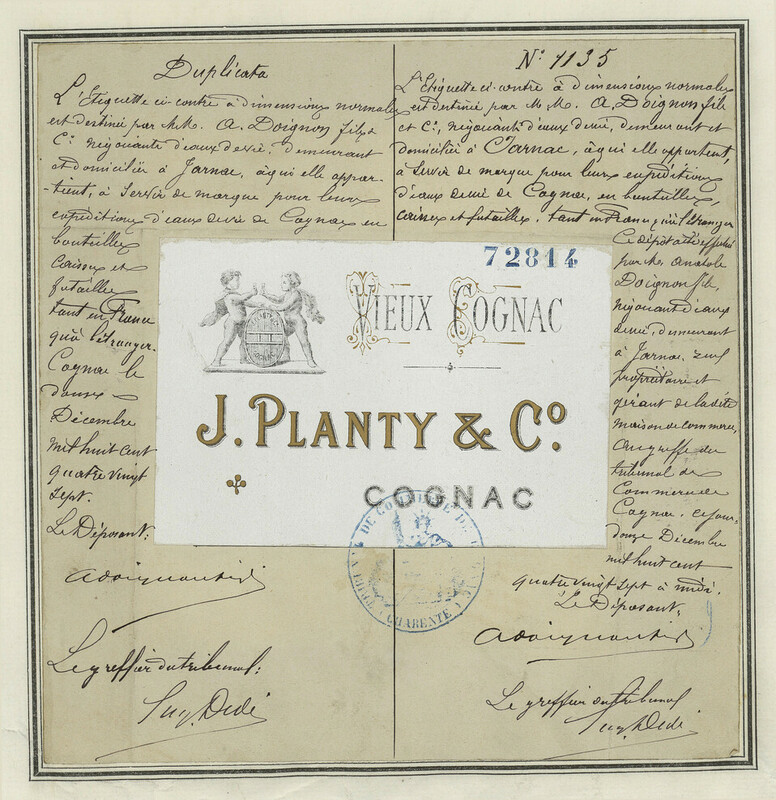 Duplicata
L'Etiquette ci-contre à dimensions normales
est destinée par M.M. A. Doignon fils &
Cⁱᵉ négociants d'eaux de vie, demeurant
et domiciliés à Jarnac, à qui elle appar-
-tient, à servir de marque pour leurs
expéditions d'eaux de vie de Cognac en
bouteilles
caisses et
futailles
tant en France
qu'à l'étranger.
Cognac le
douze
Décembre
mil huit cent
quatre vingt
sept.
Le Déposant:
Le greffier du tribunal:
N° 1135
L'Etiquette ci-contre à dimensions normales
est destinée par M.M. A. Doignon fils
et Cⁱᵉ, négociants d'eaux de vie, demeurant et
domiciliés à Jarnac, à qui elle appartient,
à servir de marque pour leurs expéditions
d'eaux de vie de Cognac, en bouteilles,
caisses et futailles, tant en France qu'à l'étranger
Ce dépôt a été effectué
par Mr Anatole
Doignon fils,
négociant d'eaux
de vie, demeurant
à Jarnac, seul
propriétaire et
gérant de la dite
maison de commerce,
au greffe du
tribunal de
Commerce de
Cognac, ce jour,
douze Décembre
mil huit cent
quatre vingt sept à midi.
Le Déposant:
Le greffier du tribunal
72814
VIEUX COGNAC
J. PLANTY & Cº.
COGNAC
DE COMMERCE DE
CHARENTE